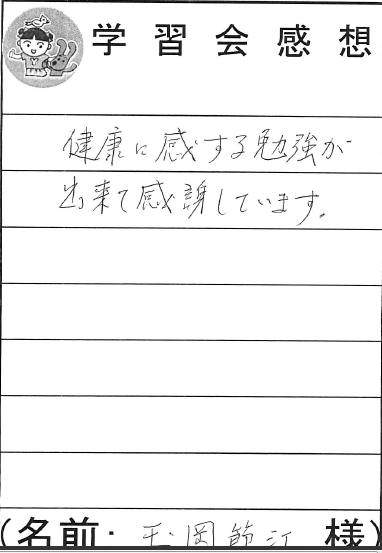 学習会感想
健康に感する勉強が
出来て感謝しています。
(名前・玉岡節江 様)